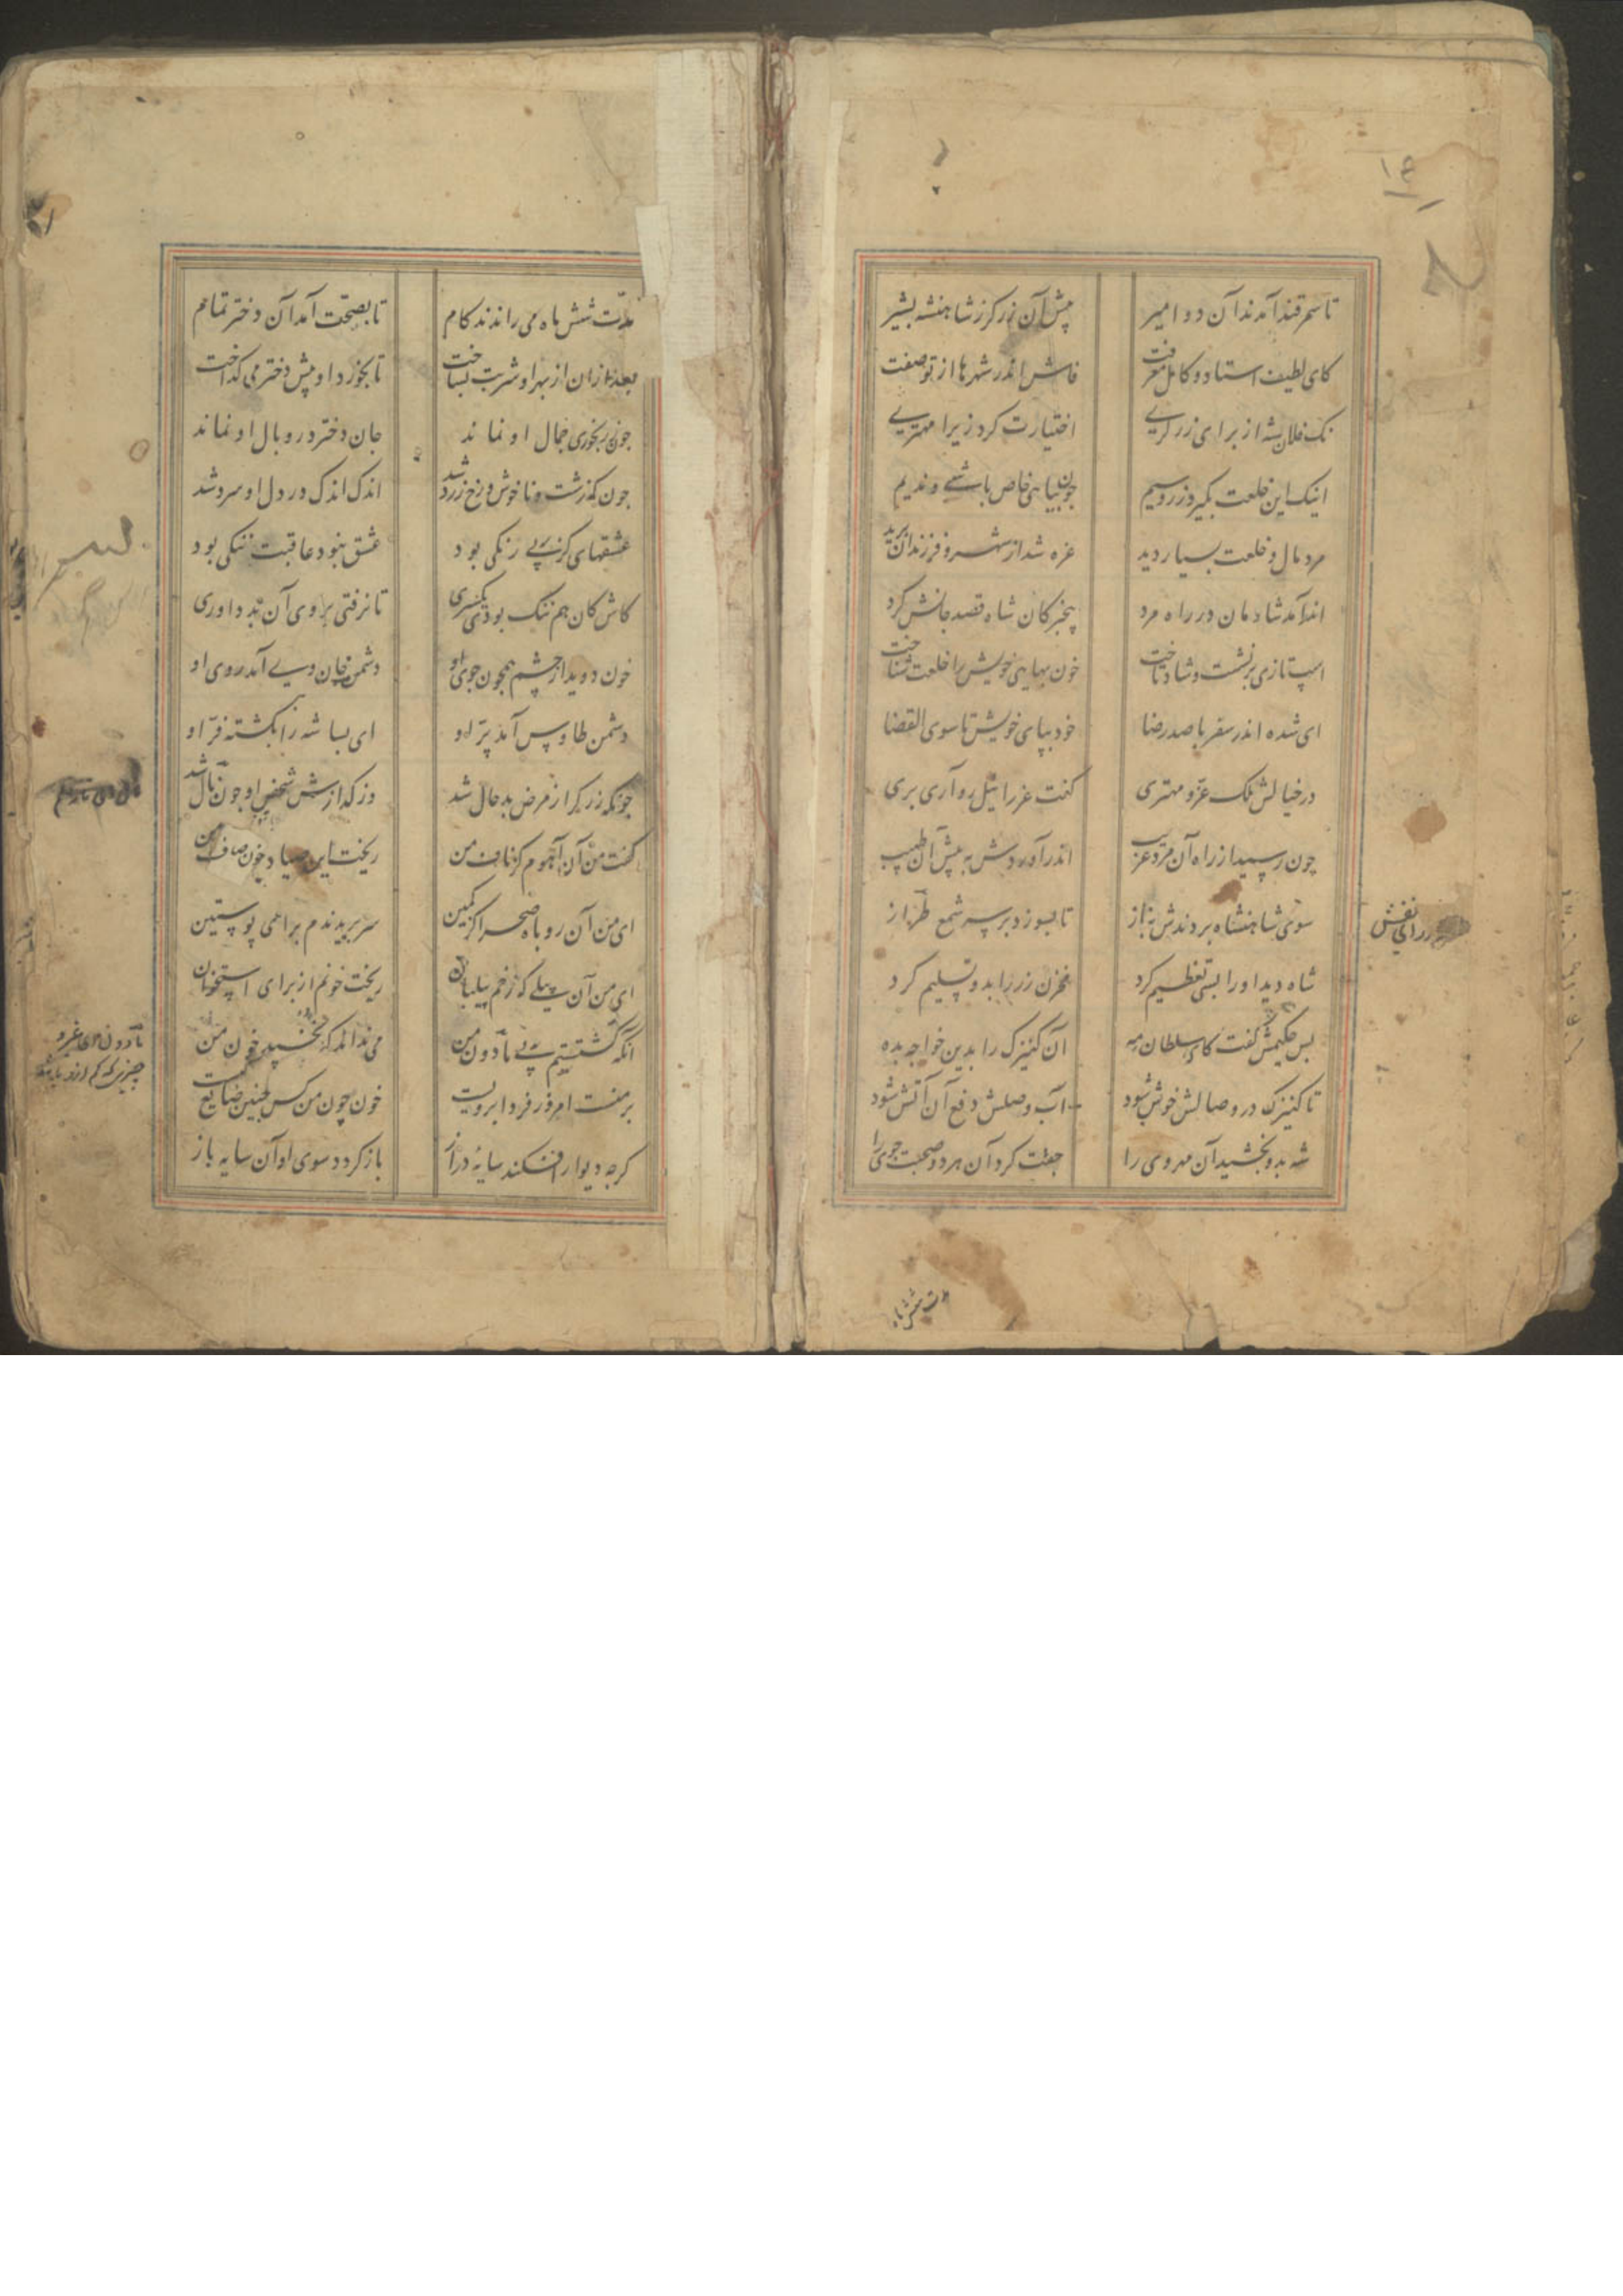 ۱۴
تا سمرقند آمدند آن دو امیر
پیش آن زرکر ز شاهنشه بشیر
کای لطیف استاد و کامل معرفت
فاش اندر شهرها از تو صفت
نک فلان شه از برای زرکری
اختیارت کرد زیرا مهتری
اینک این خلعت بکیر و زر و سیم
چون بیایی خاص باشی و ندیم
مرد مال و خلعت بسیار دید
غره شد از شهر و فرزندان برید
اندر آمد شادمان در راه مرد
بیخبر کان شاه قصد جانش کرد
اسپ تازی برنشست و شاد تاخت
خون بهای خویش را خلعت شناخت
ای شده اندر سفر با صد رضا
خود بپای خویش تا سوی القضا
در خیالش ملک عز و مهتری
کفت عزرائیل رو آری بری
چون رسید از راه آن مرد غریب
اندر آوردش به پیش آن طبیب
سوی شاهنشاه بردندش بناز
تا بسوزد بر سر شمع طراز
شاه دید او را بسی تعظیم کرد
مخزن زر را بدو تسلیم کرد
بس حکیمش کفت کای سلطان مه
آن کنیزک را بدین خواجه بده
تا کنیزک در وصالش خوش شود
آب وصلش دفع آن آتش شود
شه بدو بخشید آن مه روی را
جفت کرد آن هر دو صحبت جوی را
مدت شش
مدت شش ماه می راندند کام
تا بصحت آمد آن دختر تمام
بعد از آن از بهر او شربت بساخت
تا بخورد او پیش دختر می کداخت
چون ز رنجوری جمال او نماند
جان دختر در وبال او نماند
چون که زشت و ناخوش و رخ زرد شد
اندک اندک در دل او سرد شد
عشقهای کز پی رنکی بود
عشق نبود عاقبت ننکی بود
کاش کان هم ننک بودی یکسری
تا نرفتی بر وی آن بد داوری
خون دوید از چشم همچون جوی او
دشمن جان وی آمد روی او
دشمن طاوس آمد پر او
ای بسا شه را بکشته فر او
چونکه زرکر از مرض بد حال شد
وز کدازش شخص او چون نال شد
کفت من آن آهوم کز ناف من
ریخت این صیاد خون صاف من
ای من آن روباه صحرا کز کمین
سر بریدندم برای پوستین
ای من آن پیلی که زخم پیلبان
ریخت خونم از برای استخوان
انکه کشتستم پی مادون من
می نداند که نخسپد خون من
بر منست امروز و فردا بر ویست
خون چون من کس چنین ضایع کیست
کرچه دیوار افکند سایه دراز
باز کردد سوی او آن سایه باز